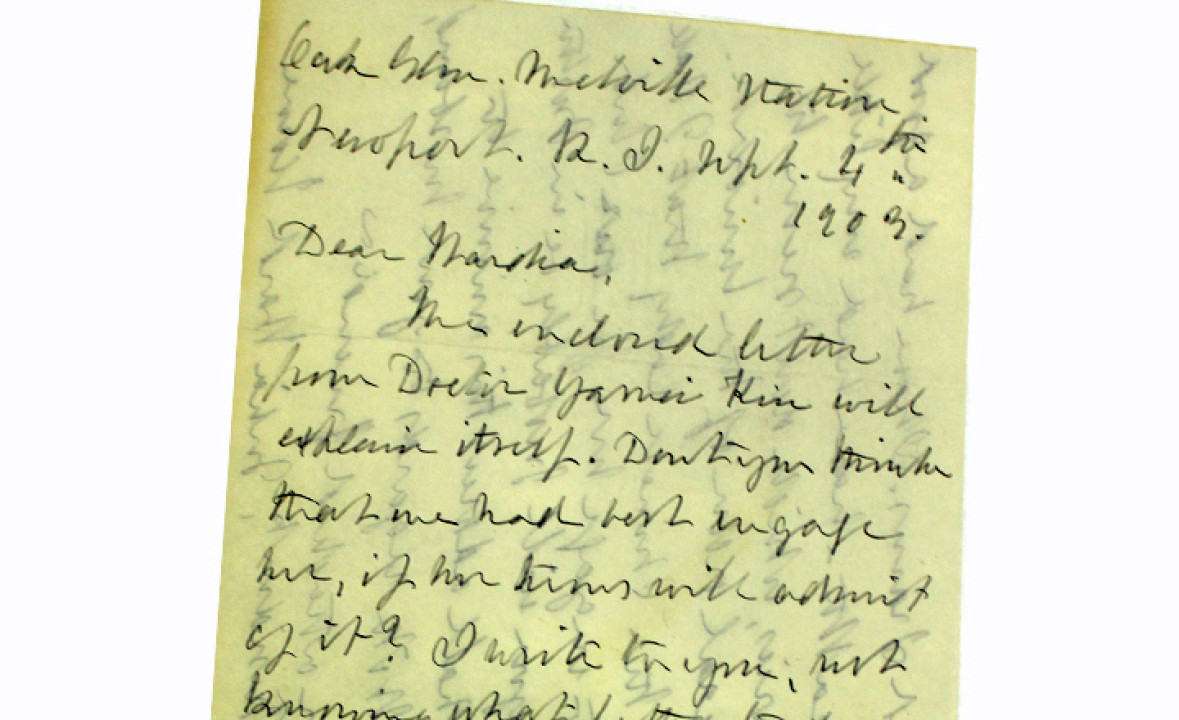 Oak Glen. Melville Station,
Newport. R. I. Sept. 4th
1903.
Dear
The enclosed letter
from Doctor Yamei Kin will
explain itself. Dont you think
that we had best engage
her, if her terms will admit
of it? I write to you, not
knowing what